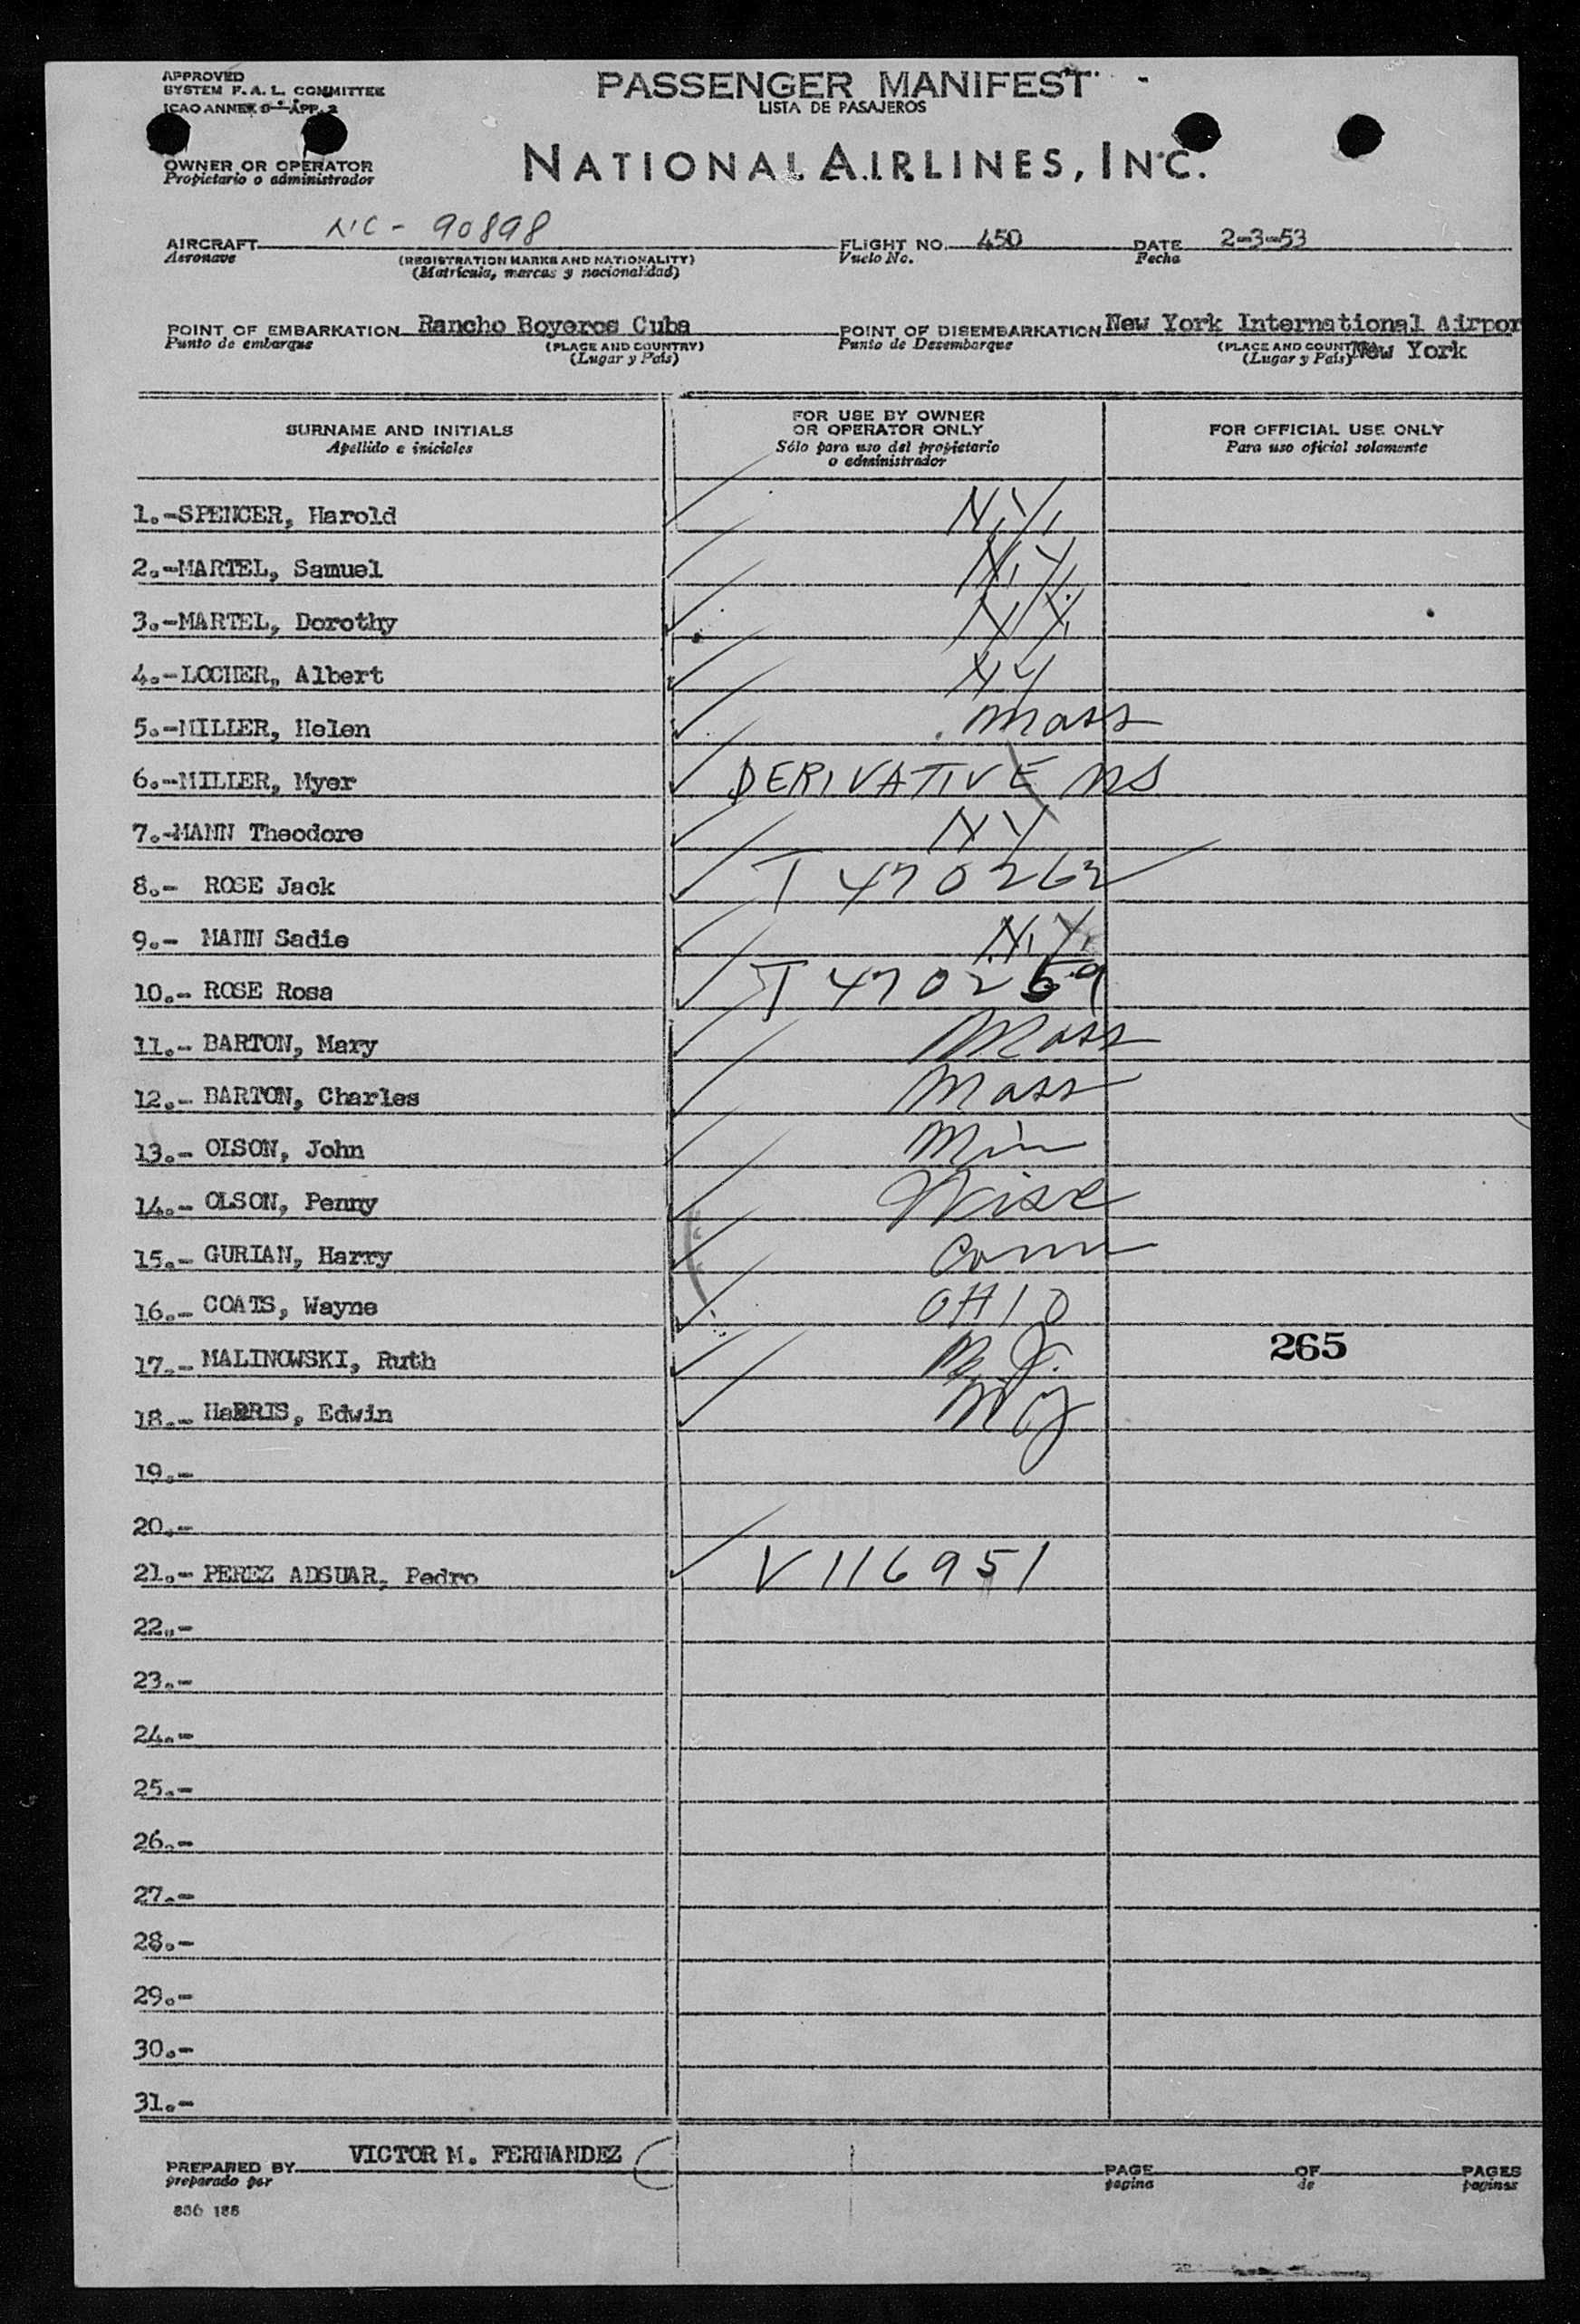 APPROVED
SYSTEM F. A. L. COMMITTEE
ICAO ANNEX 9 - APP. 2
PASSENGER MANIFEST
LISTA DE PASAJEROS
OWNER OR OPERATOR
Propietario o administrador
NATIONAL AIRLINES, INC.
AIRCRAFT NC - 90898 FLIGHT NO. 450 DATE 2-3-53
Aeronave (REGISTRATION MARKS AND NATIONALITY) Vuelo No. Fecha
(Matrícula, marcas y nacionalidad)
POINT OF EMBARKATION Rancho Boyeros Cuba POINT OF DISEMBARKATION New York International Airpor
Punto de embarque (PLACE AND COUNTRY) Punto de Desembarque (PLACE AND COUNT New York
(Lugar y País) (Lugar y País)
SURNAME AND INITIALS FOR USE BY OWNER OR OPERATOR ONLY FOR OFFICIAL USE ONLY
Apellido e iniciales Sólo para uso del propietario o administrador Para uso oficial solamente
1.-SPENCER, Harold N.Y.
2.-MARTEL, Samuel N.Y.
3.-MARTEL, Dorothy N.Y.
4.-LOCHER, Albert NY
5.-MILLER, Helen Mass
6.-MILLER, Myer DERIVATIVE
7.-MANN Theodore NY
8.- ROSE Jack T 470262
9.- MANN Sadie N.Y.
10.- ROSE Rosa T 470259
11.- BARTON, Mary Mass
12.- BARTON, Charles Mass
13.- OLSON, John Min
14.- OLSON, Penny Wisc
15.- GURIAN, Harry Conn
16.- COATS, Wayne OHIO
17.- MALINOWSKI, Ruth 265
18.- HaRRIS, Edwin NJ
19.-
20.-
21.- PEREZ ADSUAR, Pedro V 116951
22.-
23.-
24.-
25.-
26.-
27.-
28.-
29.-
30.-
31.-
PREPARED BY VICTOR M. FERNANDEZ PAGE OF PAGES
preparado por pagina de paginas
836 186